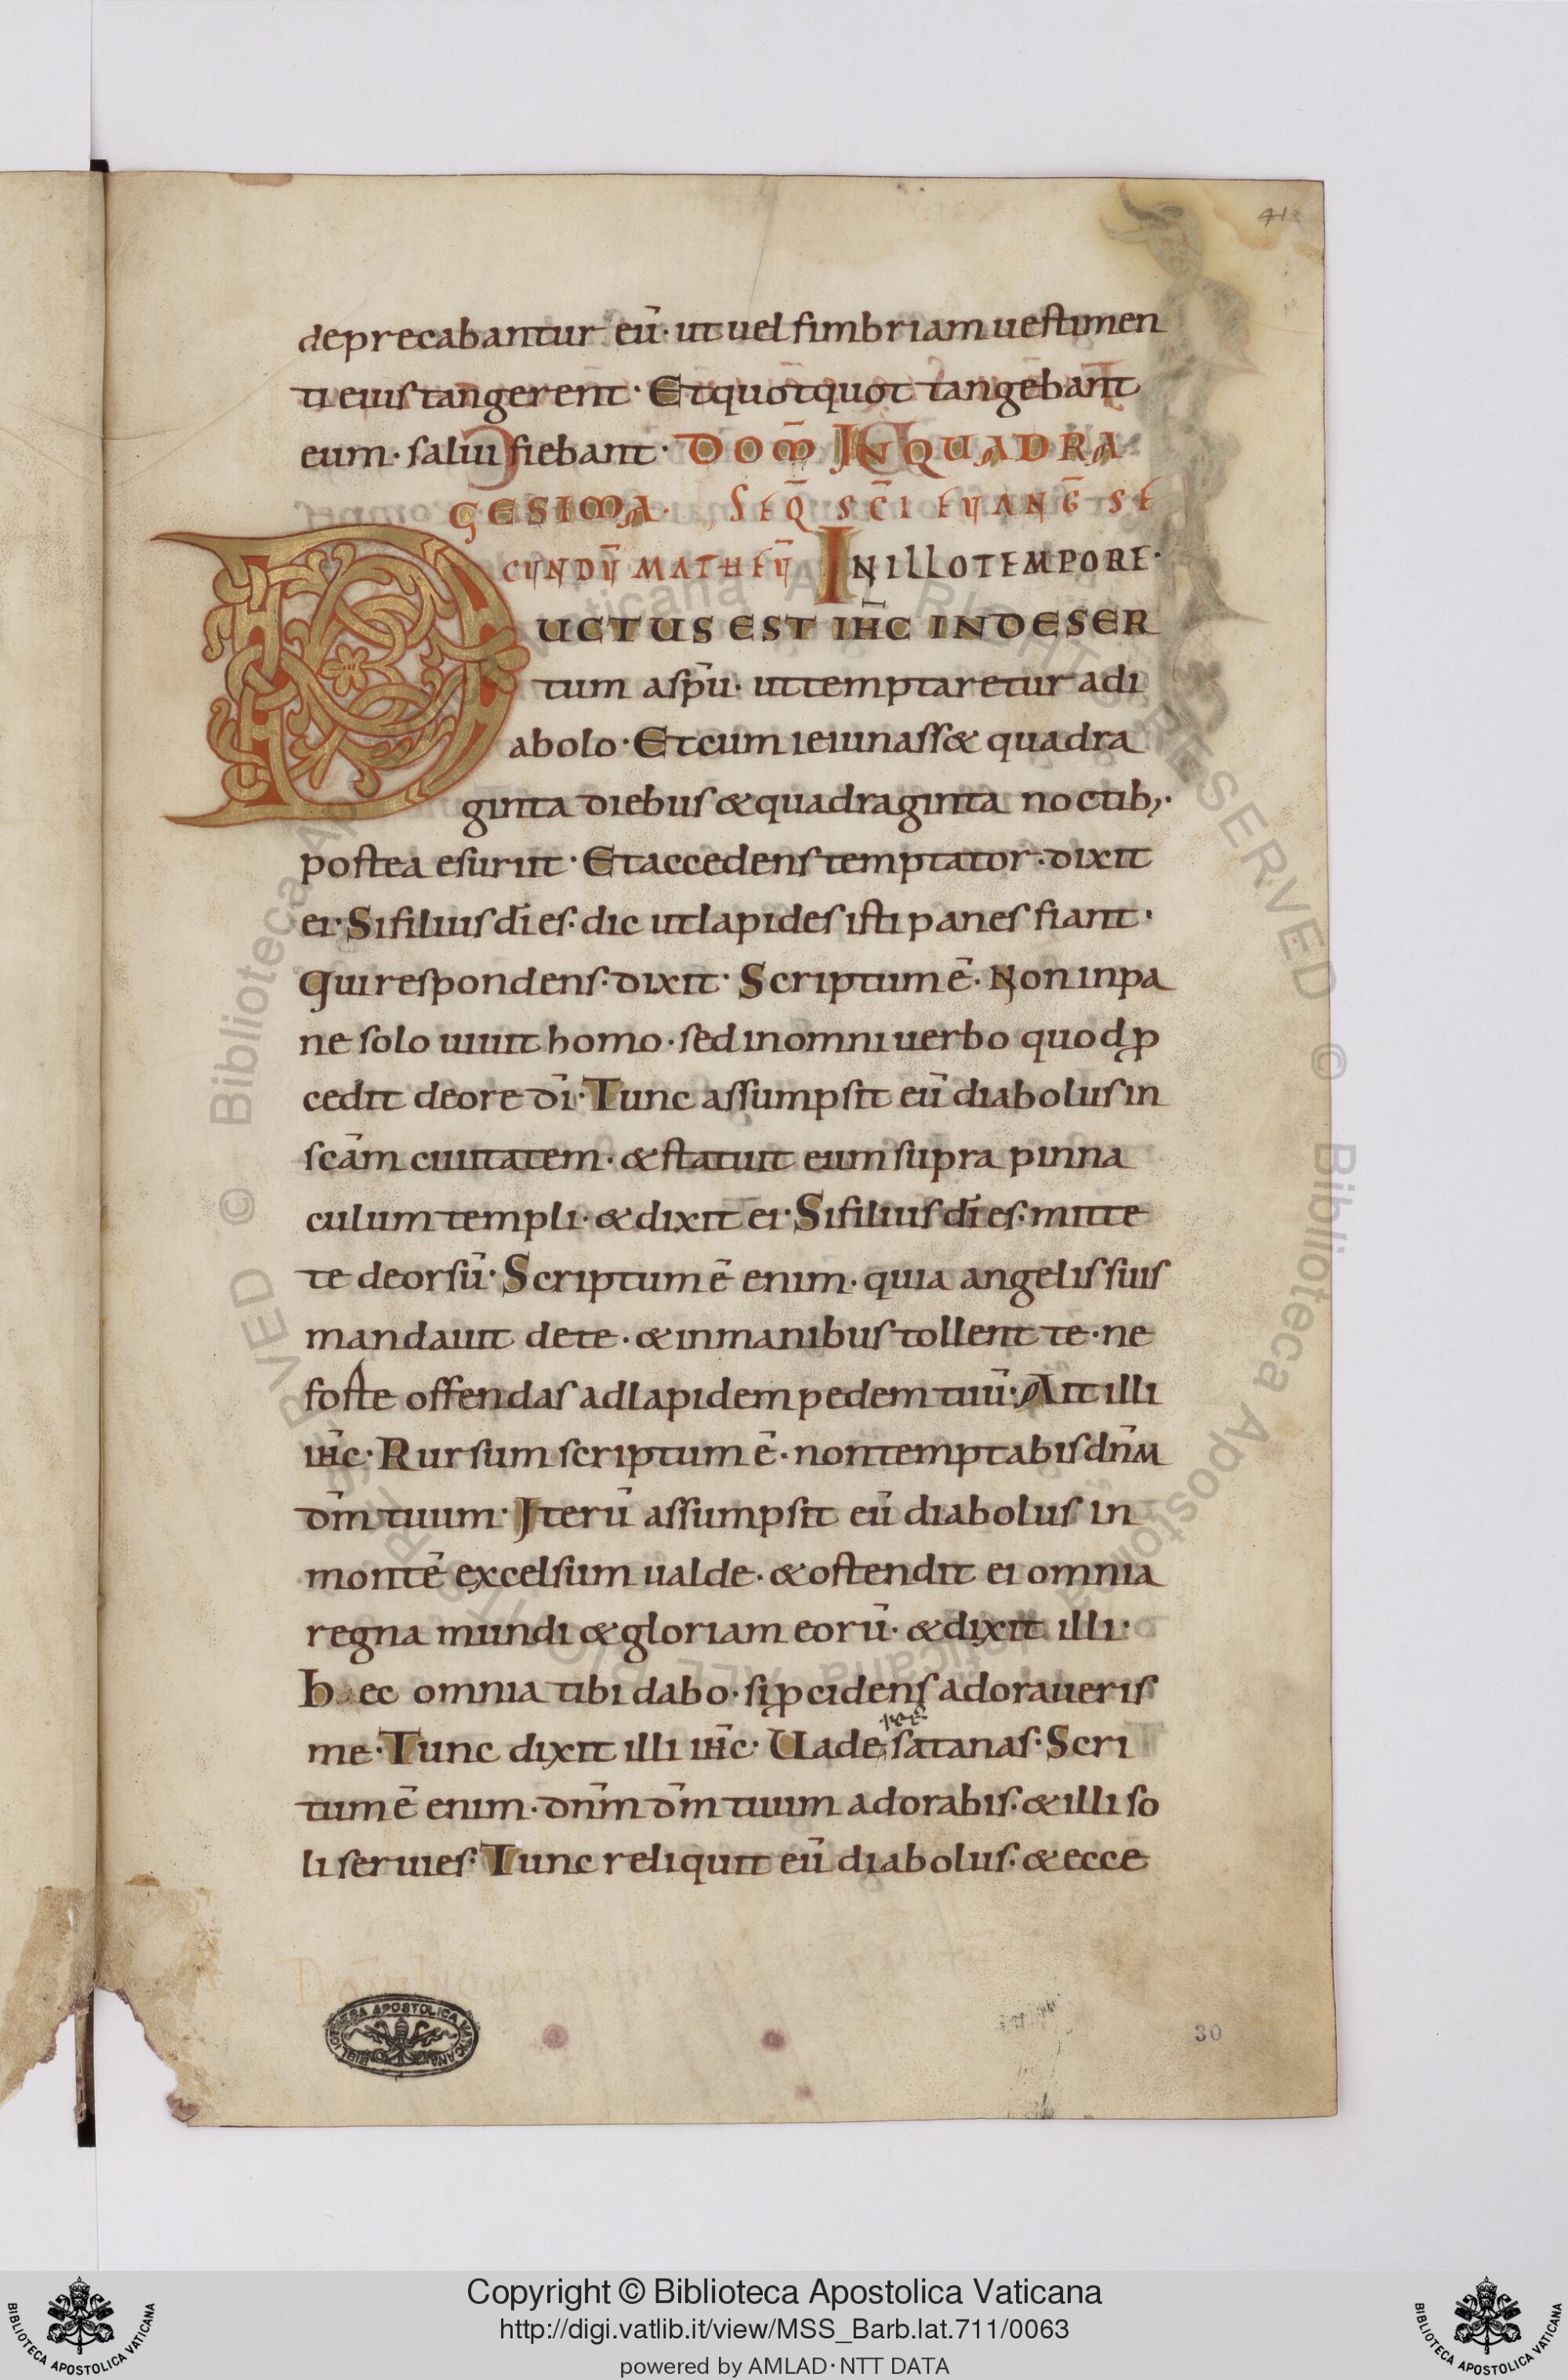 41
deprecabantur eū· ut uel fimbriam uestimen
ti eius tangerent· Et quotquot tangebant
eum· salui fiebant· DOM̄ IN QUADRA
GESIMA· SEQ̄ SC̄I EVANḠ SE
CVNDV̄ MATHEV̄ IN ILLO TEMPORE·
DUCTUS EST IH̄C IN DESER
tum a sp̄u· ut temptaretur a di
abolo· Et cum ieiunass& quadra
ginta diebus & quadraginta noctib;·
postea esuriit· Et accedens temptator· dixit
ei· Si filius dī es· dic ut lapides isti panes fiant·
Qui respondens· dixit· Scriptum ē· Non in pa
ne solo uiuit homo· sed in omni uerbo quod ꝓ
cedit de ore dī· Tunc assumpsit eū diabolus in
scām ciuitatem· & statuit eum supra pinna
culum templi· & dixit ei· Si filius dī es· mitte
te deorsū· Scriptum ē enim· quia angelis suis
mandauit de te· & in manibus tollent te· ne
forte offendas ad lapidem pedem tuū· Ait illi
ih̄c· Rursum scriptum ē· non temptabis dn̄m
dm̄ tuum· Iterū assumpsit eū diabolus in
montē excelsum ualde· & ostendit ei omnia
regna mundi & gloriam eorū· & dixit illi·
Haec omnia tibi dabo· si ꝓcidens adoraueris
me· Tunc dixit illi ih̄c· Uade satanas· Scri
tum ē enim· dn̄m dm̄ tuum adorabis· & illi so
li seruies· Tunc reliquit eū diabolus· & ecce
BIBLIOTECA APOSTOLICA VATICANA
30
© Biblioteca Apostolica Vaticana ALL RIGHTS RESERVED
Copyright © Biblioteca Apostolica Vaticana
http://digi.vatlib.it/view/MSS_Barb.lat.711/0063
powered by AMLAD·NTT DATA
BIBLIOTECA APOSTOLICA VATICANA
BIBLIOTECA APOSTOLICA VATICANA